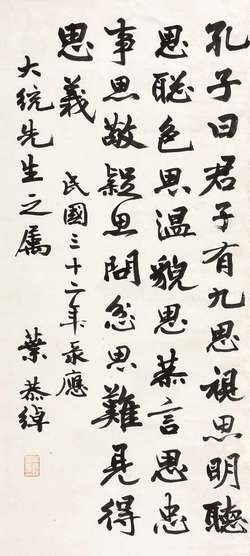 孔子曰君子有九思視思明聽
思聰色思溫貌思恭言思忠
事思敬疑思問忿思難見得
思義
民國三十二年承應
大統先生之屬
葉恭綽